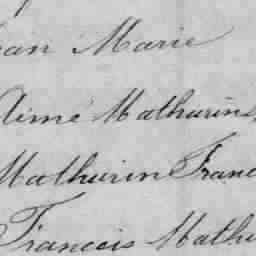 ean Marie
Aimé Mathurin
Mathurin Franc
Francois Mathu